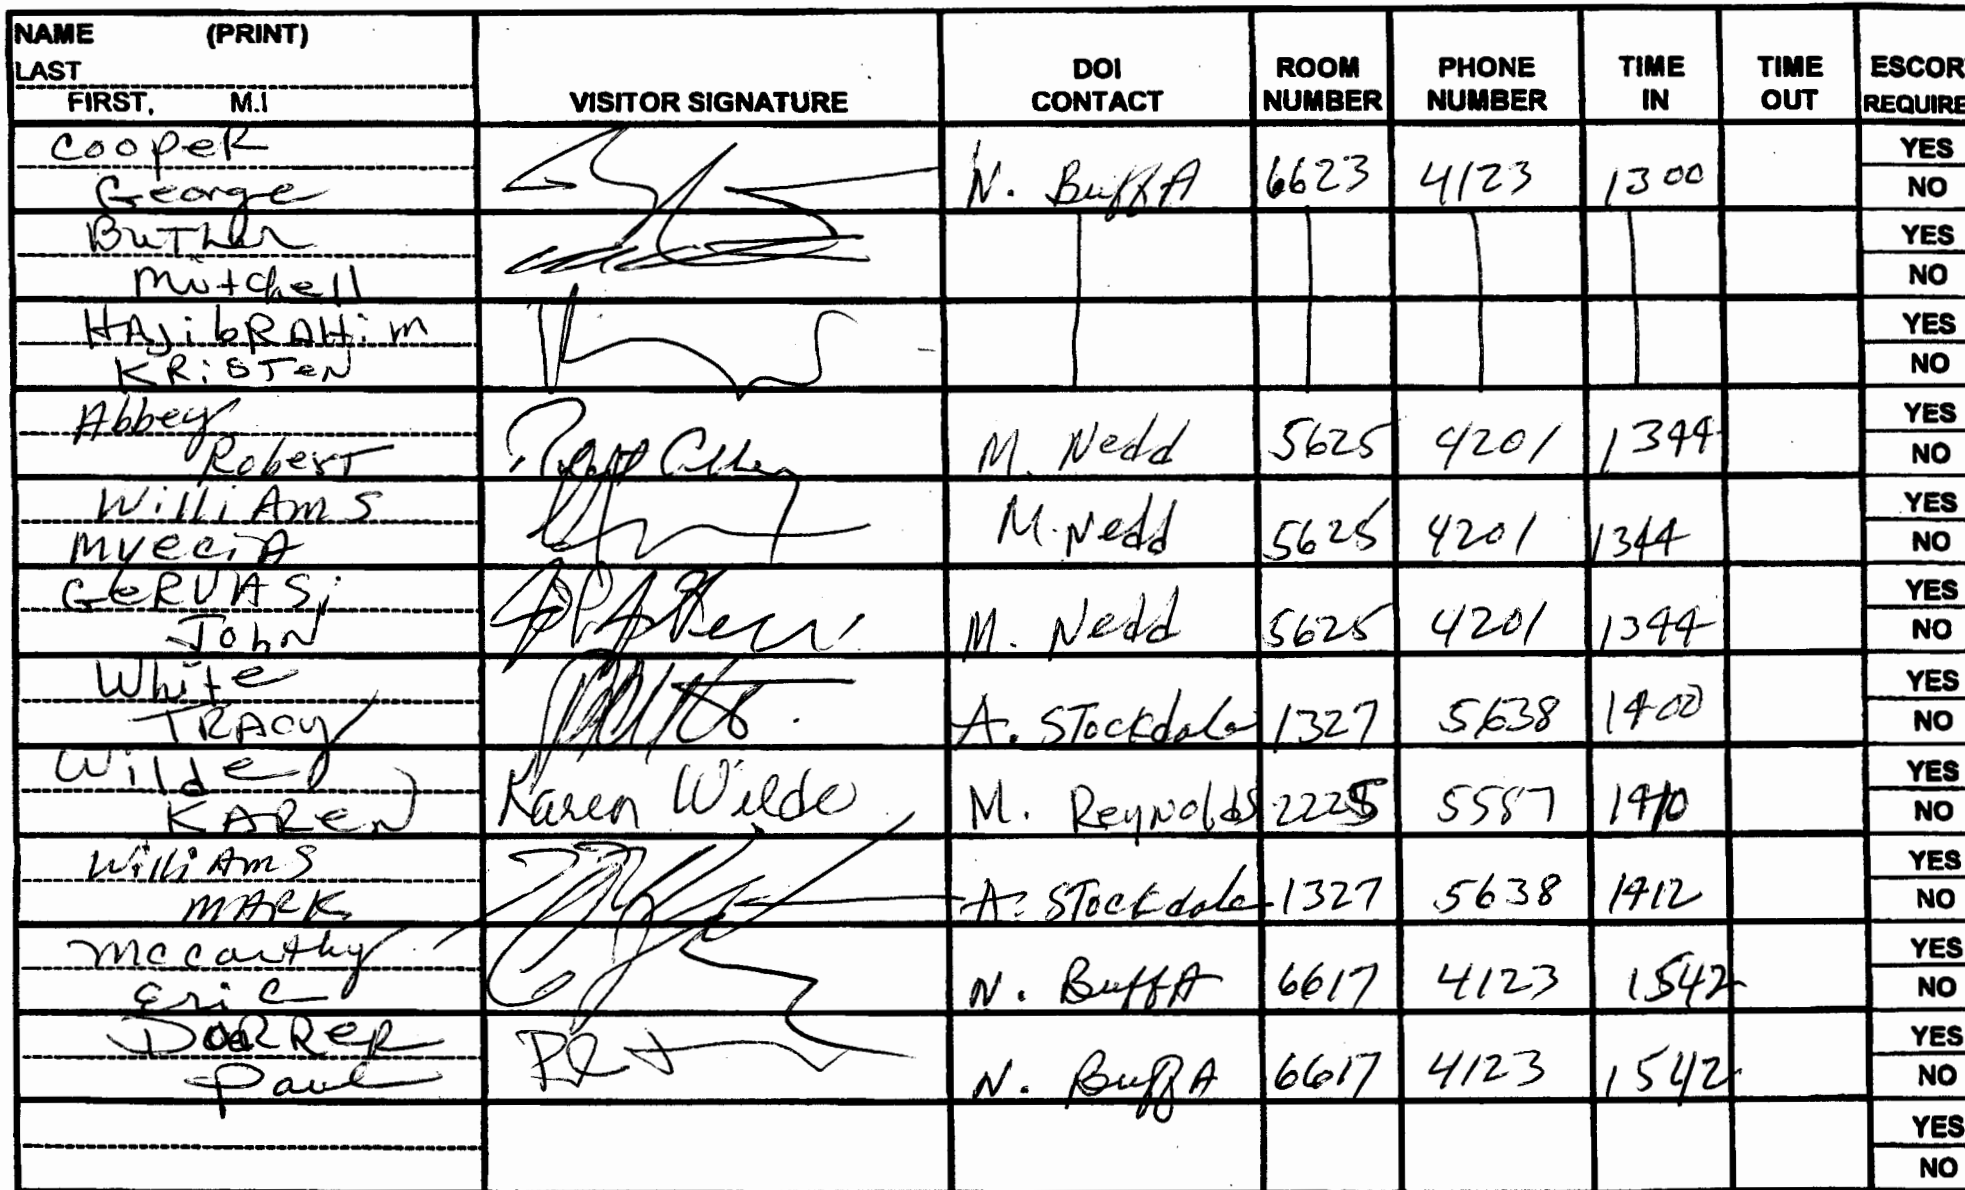 NAME (PRINT)
LAST
FIRST, M.I
VISITOR SIGNATURE
DOI
CONTACT
ROOM
NUMBER
PHONE
NUMBER
TIME
IN
TIME
OUT
ESCOR
REQUIRE
Cooper
George
N. Buffa 6623 4123 1300
YES
NO
Butler
Mitchell
YES
NO
HAjibRAHim
KRiSTeN
YES
NO
Abbey
Robert
M. Nedd 5625 4201 1344
YES
NO
Williams
Myecia
M. Nedd 5625 4201 1344
YES
NO
GeRVASi
John
M. Nedd 5625 4201 1344
YES
NO
White
TRACY
A. Stockdale 1327 5638 1400
YES
NO
Wilde
KAREN
Karen Wilde M. Reynolds 2225 5587 1410
YES
NO
Williams
MARK
A. Stockdale 1327 5638 1412
YES
NO
McCarthy
Eric
N. Buffa 6617 4123 1542
YES
NO
Paul
N. Buffa 6617 4123 1542
YES
NO
YES
NO